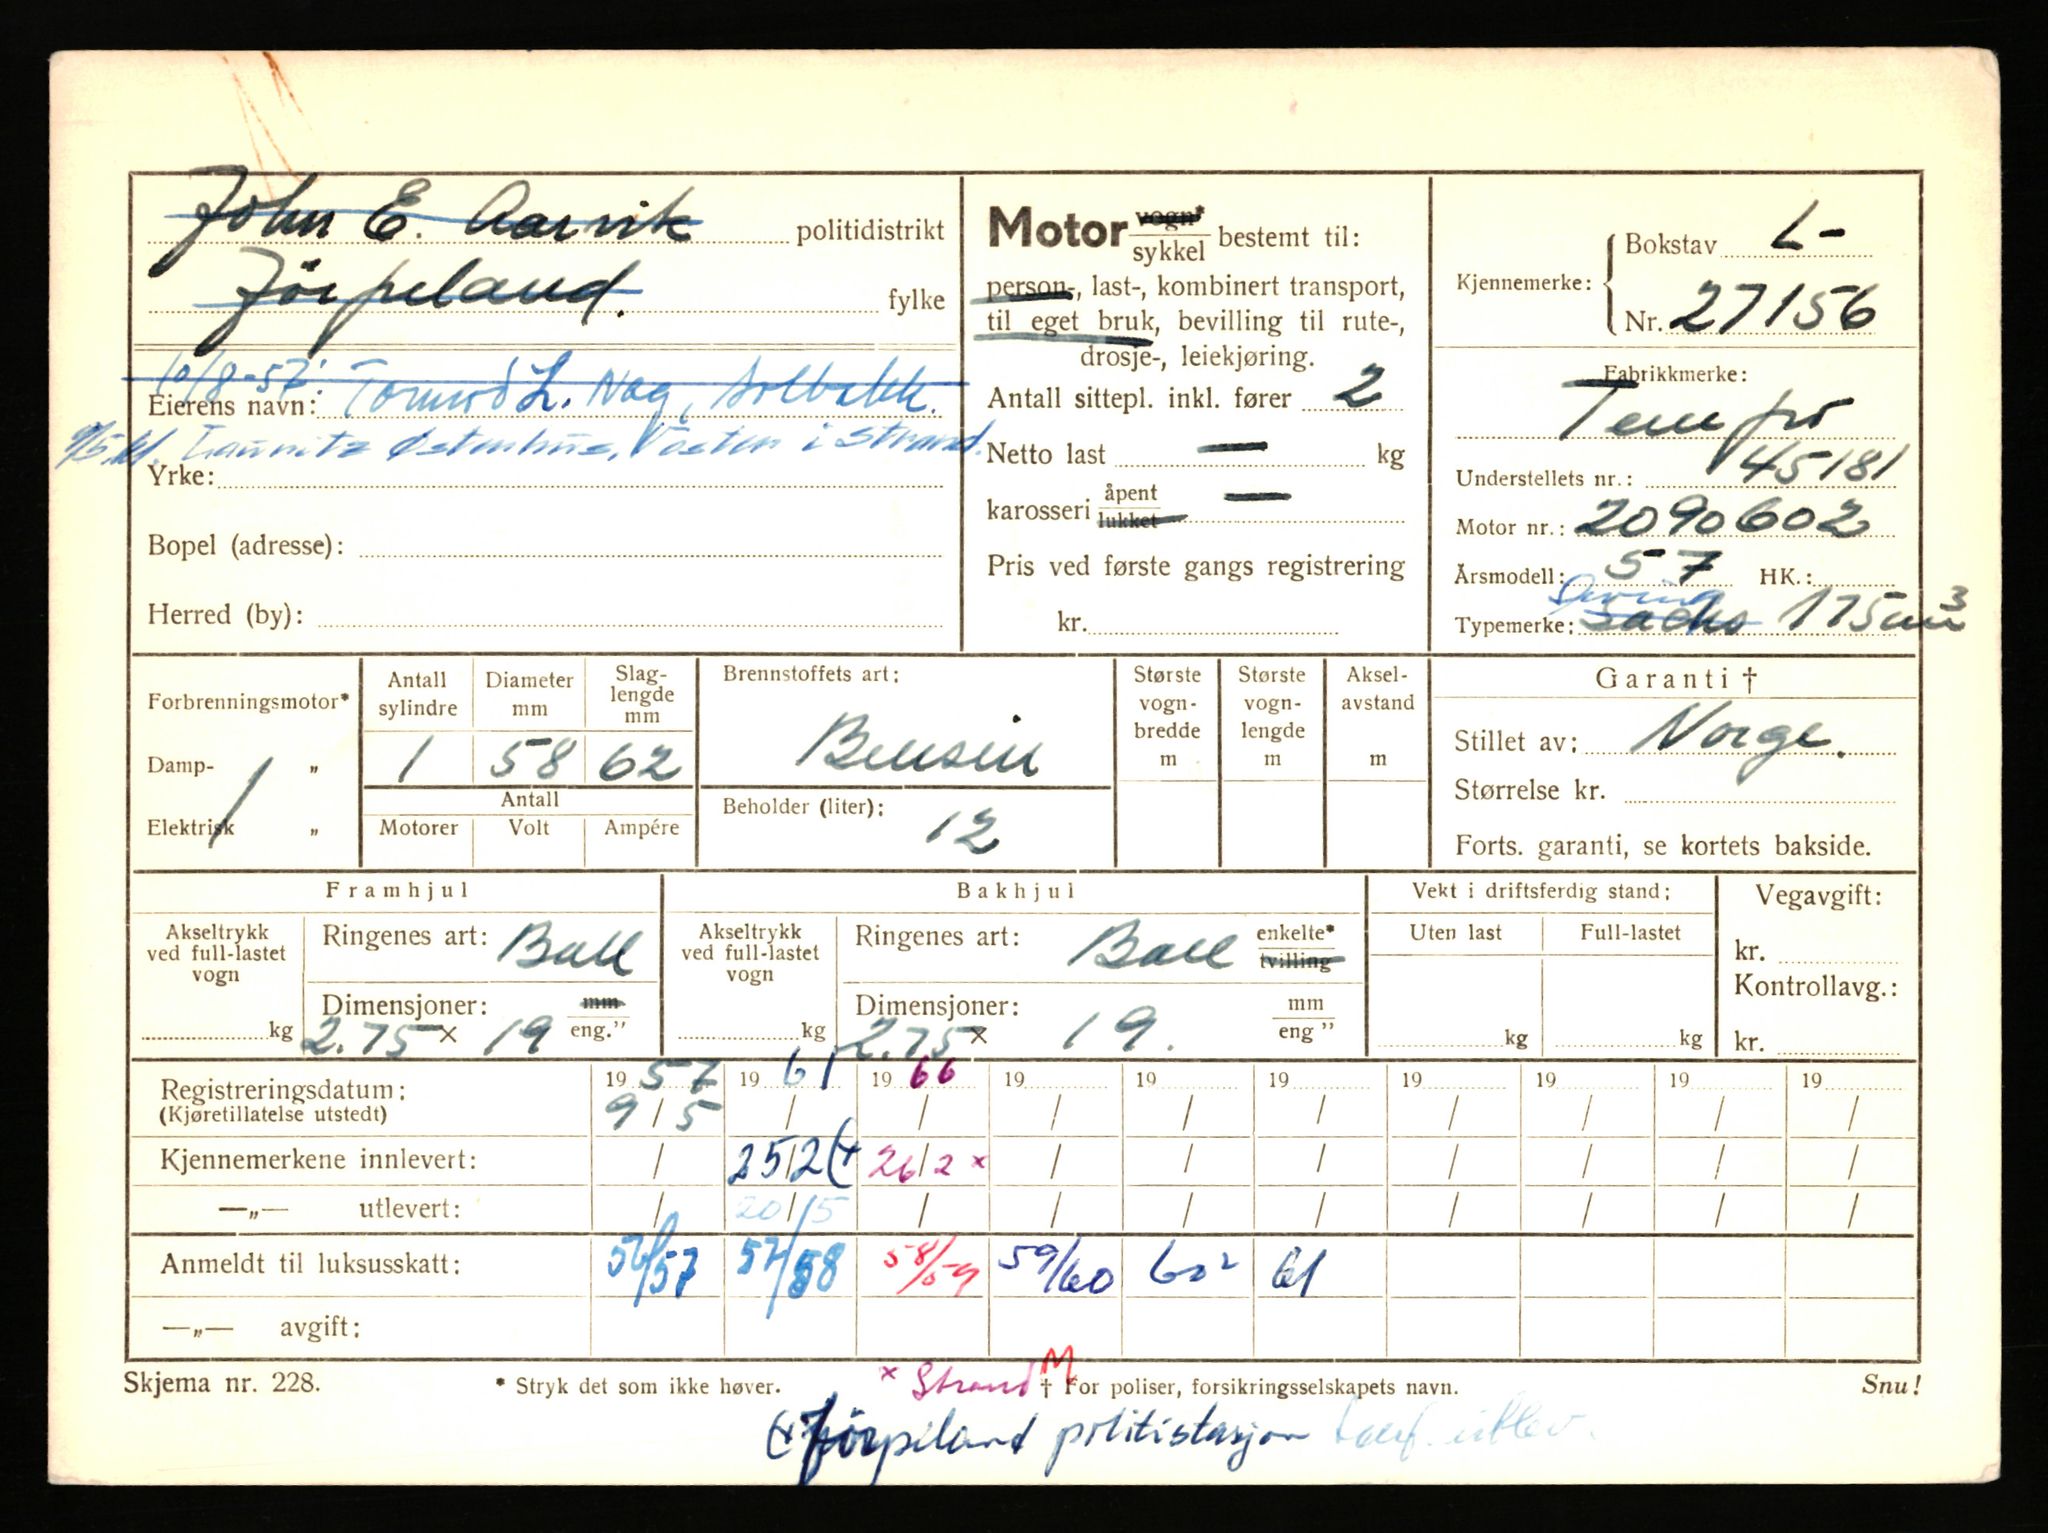 John E. Aarvik politidistrikt
Jørpeland. fylke
10/8-57: Tormod L. Nag, Solbakk.
Eierens navn:
9/5.61. Lauritz Østenhus, Tøsten i Strand.
Yrke:
Bopel (adresse):
Herred (by):
Motor vogn* / sykkel bestemt til:
person-, last-, kombinert transport,
til eget bruk, bevilling til rute-,
drosje-, leiekjøring.
Antall sittepl. inkl. fører 2
Netto last — kg
karosseri åpent / lukket —
Pris ved første gangs registrering
kr.
Kjennemerke: Bokstav L-
Nr. 27156
Fabrikkmerke:
Tempo
Understellets nr.: 45181
Motor nr.: 2090602
Årsmodell: 57 HK.:
Swing
Typemerke: Sachs 175cm³
Forbrenningsmotor*
Damp- „
Elektrisk „
Antall sylindre 1
Diameter mm 58
Slag-lengde mm 62
Antall
Motorer Volt Ampére
Brennstoffets art:
Bensin
Beholder (liter): 12
Største vogn-bredde m
Største vogn-lengde m
Aksel-avstand m
Garanti †
Stillet av: Norge.
Størrelse kr.
Forts. garanti, se kortets bakside.
Framhjul
Akseltrykk ved full-lastet vogn kg
Ringenes art: Ball
Dimensjoner: mm / eng.”
2.75 x 19
Bakhjul
Akseltrykk ved full-lastet vogn kg
Ringenes art: Ball enkelte* / tvilling
Dimensjoner: mm / eng ”
2.75 x 19.
Vekt i driftsferdig stand:
Uten last Full-lastet
kg kg
Vegavgift:
kr.
Kontrollavg.:
kr.
Registreringsdatum: 19 57 19 61 19 66 19 19 19 19 19 19 19
(Kjøretillatelse utstedt) 9/5 / / / / / / / / /
Kjennemerkene innlevert: / 25/2 (+ 26/2 x / / / / / / /
—„— utlevert: / 20/5 / / / / / / / /
Anmeldt til luksusskatt: 56/57 57/58 58/59 59/60 60² 61
—„— avgift:
Skjema nr. 228. * Stryk det som ikke høver. x Strand M † For poliser, forsikringsselskapets navn. Snu!
(+ Jørpeland politistasjon utlev.